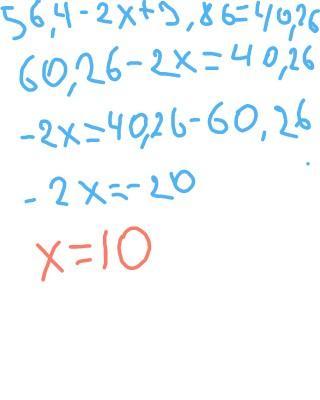 56,4-2x+3,86=40,26
60,26-2x=40,26
-2x=40,26-60,26
-2x=-20
x=10